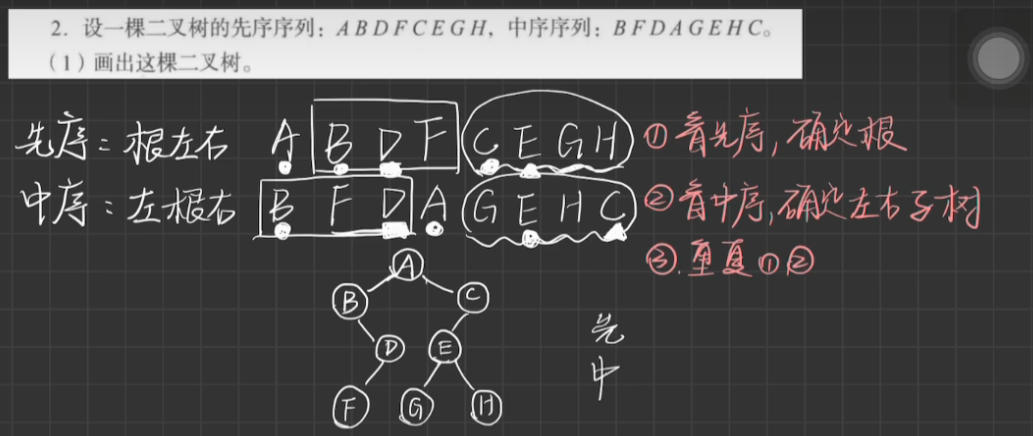 2. 设一棵二叉树的先序序列：A B D F C E G H，中序序列：B F D A G E H C。
（1）画出这棵二叉树。
先序：根左右 A B D F C E G H ①看先序，确定根
中序：左根右 B F D A G E H C ②看中序，确定左右子树
③.重复①②
A
B C
D E
F G H
先
中